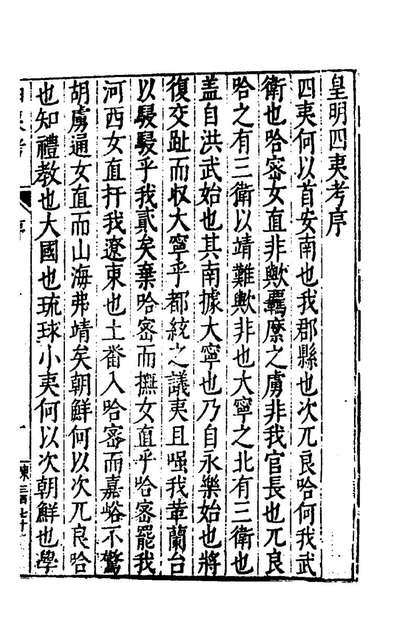 皇明四夷考序
四夷何以首安南也我郡縣也次兀良哈何我武
衛也哈密女直非歟羈縻之虜非我官長也兀良
哈之有三衛以靖難歟非也大寧之北有三衛也
盖自洪武始也其南據大寧也乃自永樂始也將
復交趾而収大寧乎都統之議夷且嗤我華蘭台
以駸駸乎我貳矣棄哈密而撫女直乎哈密罷我
河西女直扞我遼東也土畨入哈密而嘉峪不驚
胡虜通女直而山海弗靖矣朝鮮何以次兀良哈
也知禮教也大國也琉球小夷何以次朝鮮也學